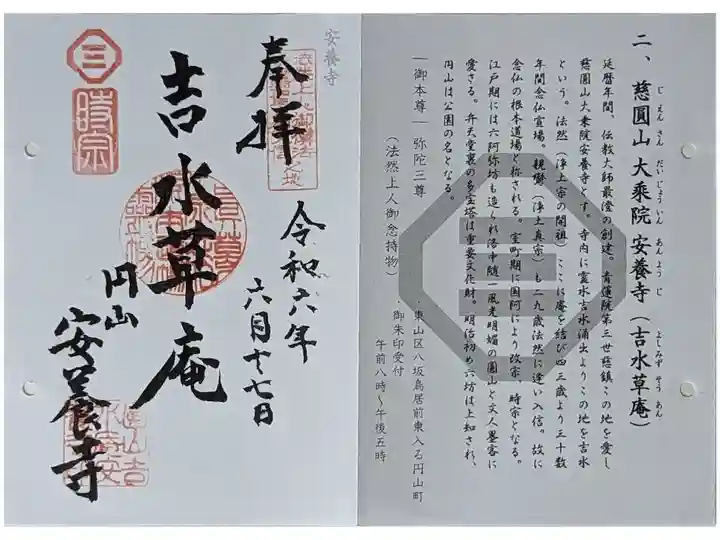 二、慈圓山 大乗院 安養寺（吉水草庵）
じえんさん だいじょういん あんようじ よしみずそうあん
延暦年間、伝教大師最澄の創建。青蓮院第三世慈鎮この地を愛し
慈圓山大乗院安養寺とす。寺内に霊水吉水涌出よりこの地を吉水
という。法然（浄土宗の開祖）ここに庵を結び四三歳より三十数
年間念仏宣場。親鸞（浄土真宗）も二九歳法然に逢い入信。故に
念仏の根本道場と称される。室町期に国阿により改宗、時宗となる。
江戸期には六阿弥坊も造られ洛中随一風光明媚の圓山と文人墨客に
愛さる。弁天堂裏の多宝塔は重要文化財。明治初め六坊は上知され、
円山は公園の名となる。
―御本尊― 弥陀三尊
（法然上人御念持物）
・東山区八坂鳥居前東入る円山町
・御朱印受付
午前八時～午後五時
安養寺
奉拝
令和六年
六月十七日
吉水草庵
円山
安養寺
三
時宗